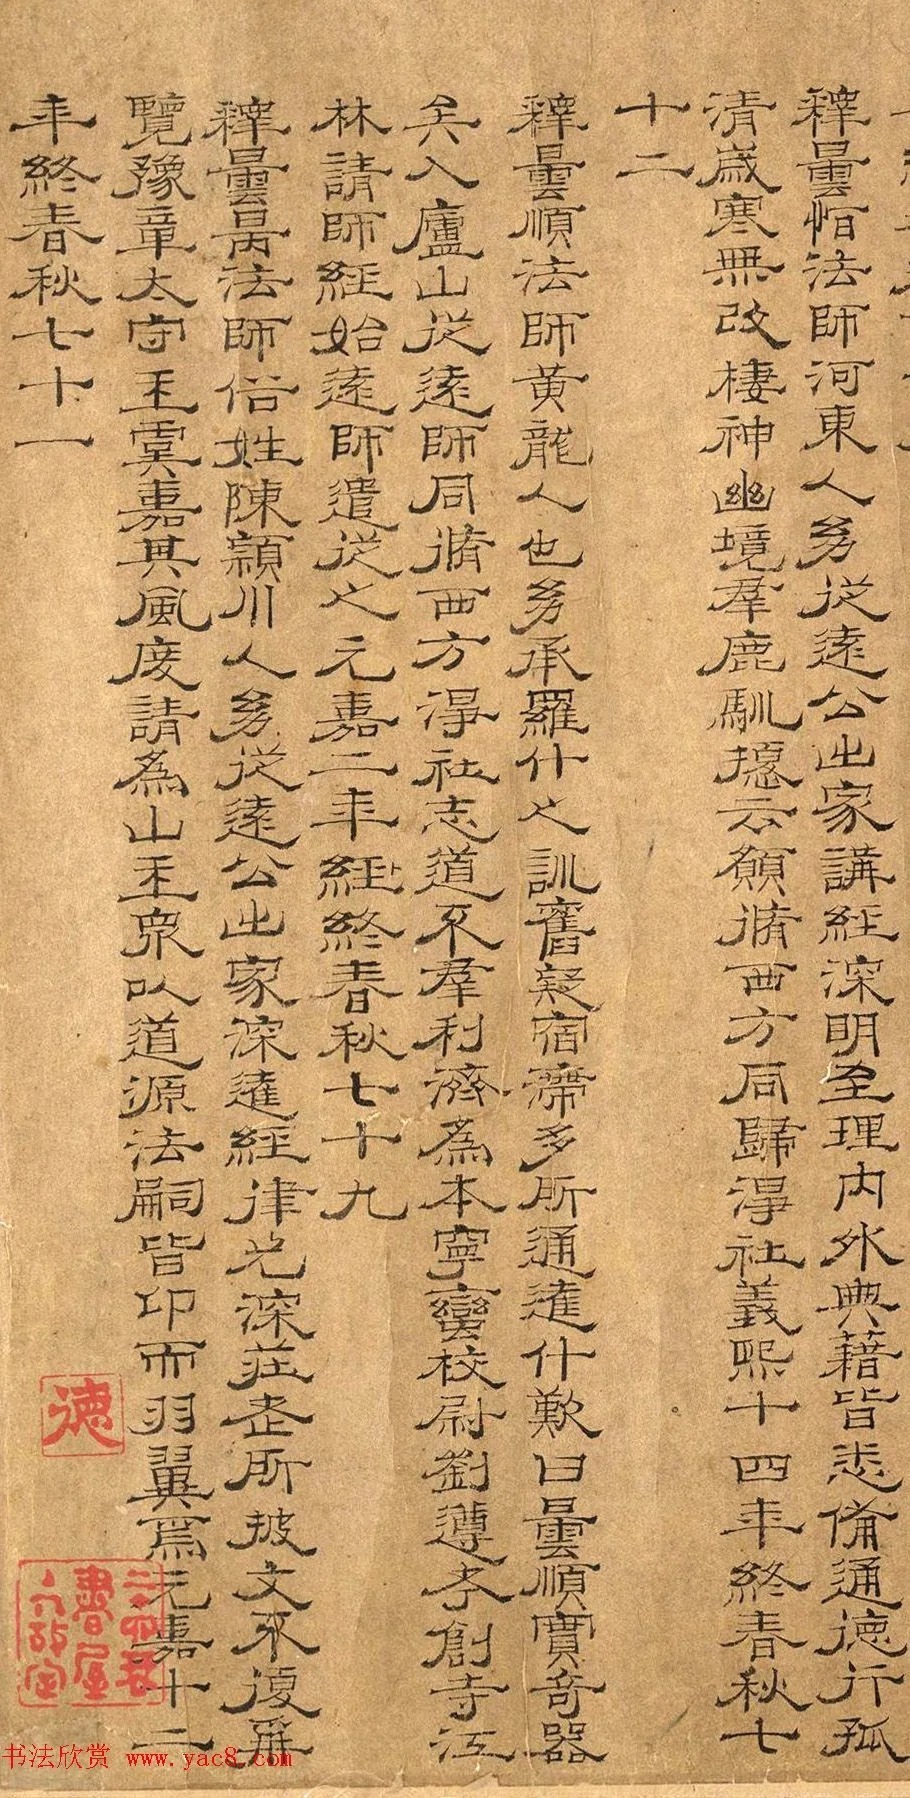 釋曇恒法師河東人㓜從遠公出家講經深明至理內外典籍皆悉俻通德行孤
清歲寒無改棲神幽境羣鹿馴擾云願脩西方同歸淨社義熙十四年終春秋七
十二
釋曇順法師黃龍人也㓜承羅什之訓舊疑宿滯多所通達什歎曰曇順寶奇器
矣入廬山從遠師同脩西方淨社志道不羣利濟為本寧蠻校尉劉遵孝創寺江
林請師經始遠師遣從之元嘉二年經終春秋七十九
釋曇昺法師俗姓陳潁川人㓜從遠公出家深達經律尤深莊老所披文不復再
覽豫章太守王虞嘉其風度請為山主眾以道源法嗣皆卬而羽翼焉元嘉十二
年終春秋七十一
德
書屋
书法欣赏 www.yac8.com